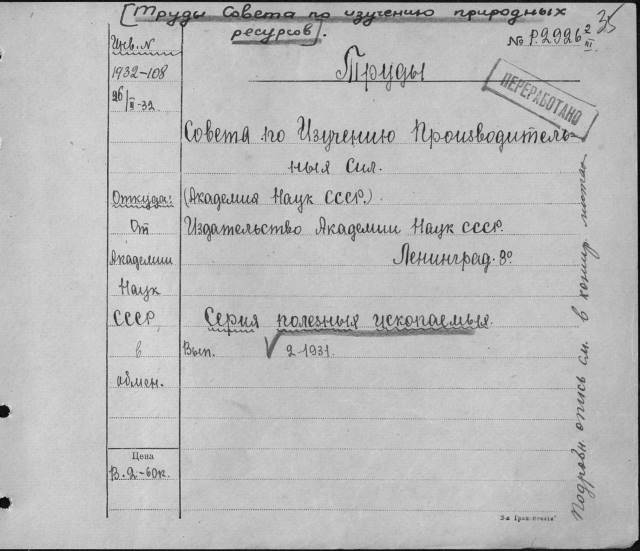 [Труды Совета по изучению природных
ресурсов].
35
№ P.2926 2/III
Инв. N
1932-108
26/III-32
Труды
ПЕРЕРАБОТАНО
Совета по Изучению Производитель-
ных Сил.
Откуда:
От
Академии
Наук
СССР
в
обмен.
(Академия Наук СССР.)
Издательство Академии Наук СССР.
Ленинград. 8º
Серия полезных ископаемых.
Вып. 2-1931.
Цена
В.2-60к.
Подробн. опись см. в